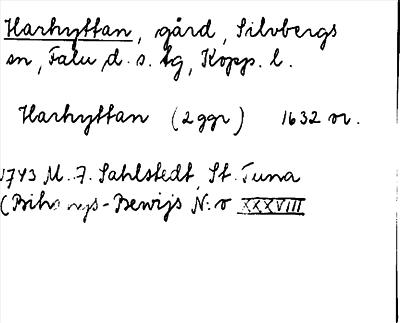 Harhyttan, gård, Silvbergs
sn, Falu d. s. tg, Kopp. l.
Harhyttan (2 ggr) 1632 or.
1743 M. F. Sahlstedt, St. Tuna
Bewijs N:o XXXVIII